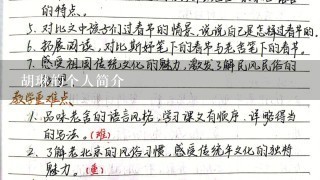 的特点。
5. 对比文中孩子们过春节的情景,说说自己是怎样过春节的。
6. 拓展阅读,对比斯妤笔下的春节与老舍笔下的春节。
7. 感受祖国传统文化的魅力,激发了解民风民俗的
胡琳的个人简介
教学重难点
1. 品味老舍的语言风格,学习课文有顺序、详略得当
的写法。(难)
2. 了解老北京的风俗习惯,感受传统年文化的独特
魅力。(重)